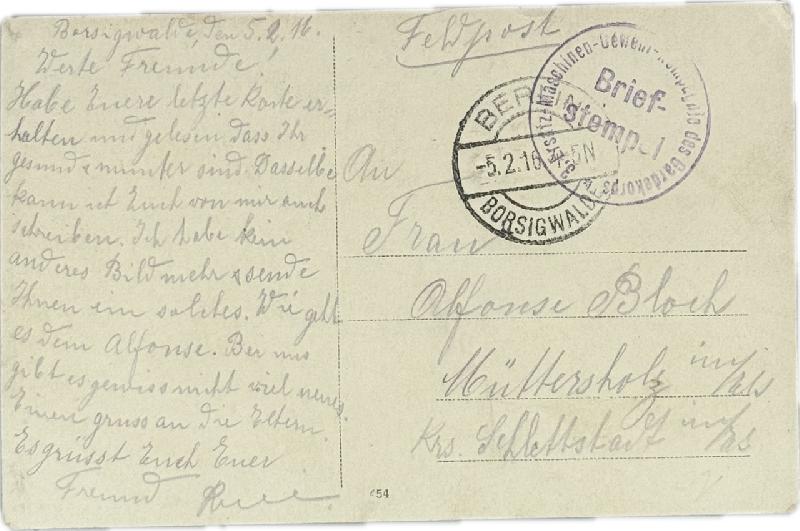 Borsigwalde, den 5.2.16.
Werte Freunde!
Habe Euere letzte Karte er-
halten und gelesen dass Ihr
gesund & munter sind. Dasselbe
kann ich Euch von mir auch
schreiben. Ich habe kein
anderes Bild mehr & sende
Ihnen ein solches. Wie geht
es dem Alfonse. Bei uns
gibt es gewiss nicht viel neues.
Einen gruss an die Eltern.
Es grüsst Euch Euer
Freund
Feldpost
BERLIN
-5.2.16. 4-5N
BORSIGWALDE
2. Ersatz-Maschinen-Gewehr-Kompagnie des Gardekorps
Brief-
stempel
An
Frau
Alfonse Bloch
Müttersholz im/Els
Krs. Schlettstadt im/Els
454